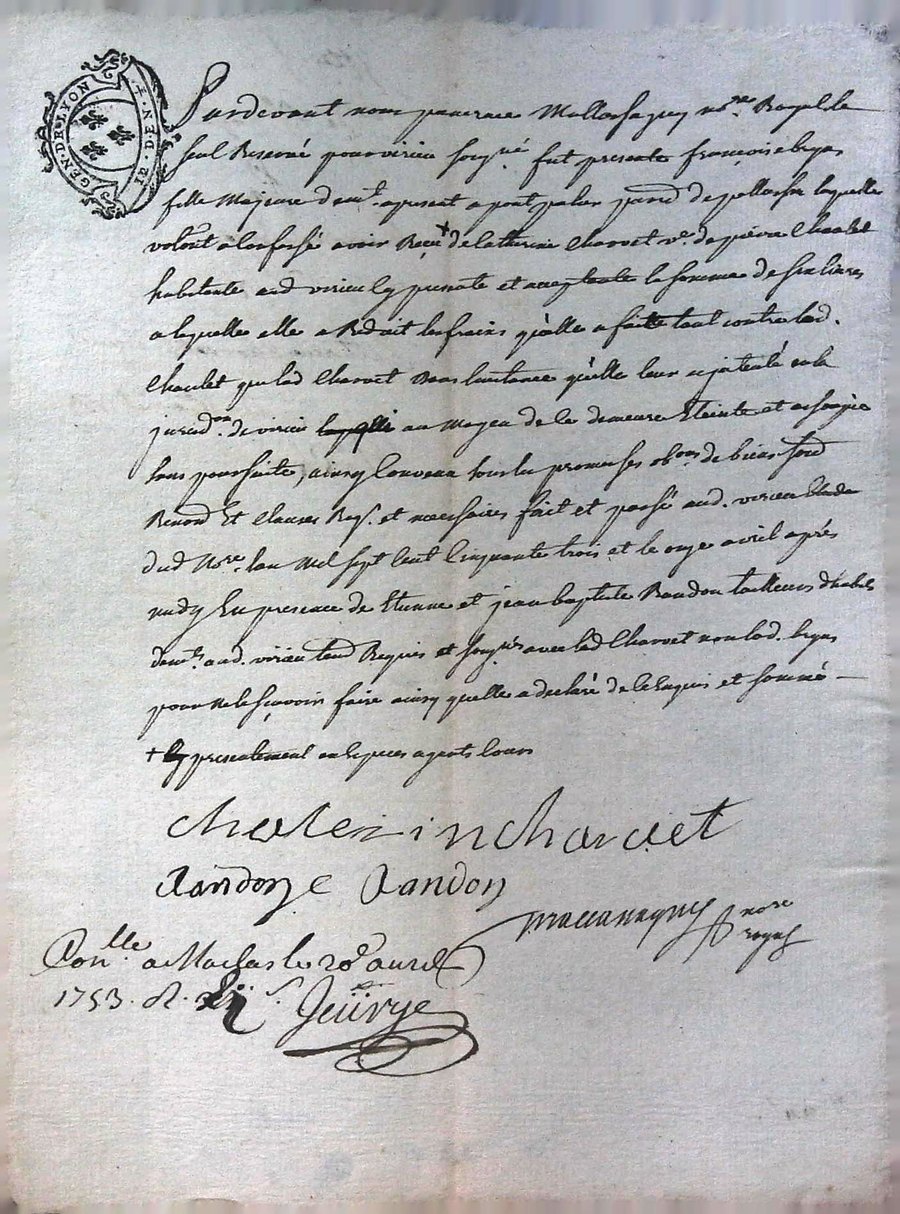 GEN. DE LYON
Pardevant nous Mallassagny no.re Royal le
seul Reservé pour virieu soigné fut presente françoise legas
fille Majeure dem.t apresent a pont palen par.d de pellassin laquelle
volont a confessé avoir Receu + de Catherine Charvet v.e de pierre Chaalet
habitante aud virieu Cy presente et acceptante la somme de six livres
a laquelle elle a Reduit les frais quelle a faitte tant contre lad.
Chaulet que lad Charvet dans linstance quelle leur a jntenté en la
jurisd.on de virieu au moyen de ce demeure Eteinte et assoupie
sans poursuitte, ainsy Convenu sous les promesses ob.ons de biens soud
Renond Et Clauses Req.s et necessaires fait et passé aud. virieu Etude
dud No.re Lan Mil sept Cent Cinquante trois et le onze avril après
midy En presence de Etienne et jean baptiste Randon tailleurs d'habits
dem.ts aud. virieu tem.d Requis et soug.nés avec lad Charvet non lad. legas
pour ne le sçavoir faire ainsy quelle a declaré de ce Enquis et sommé
+ presentement en Especes ayants cours
chaterin charvet
Randon e Randon
Mallassagny no.re
royal
Con.lle a Maclas le 20.e avril
1753. R.